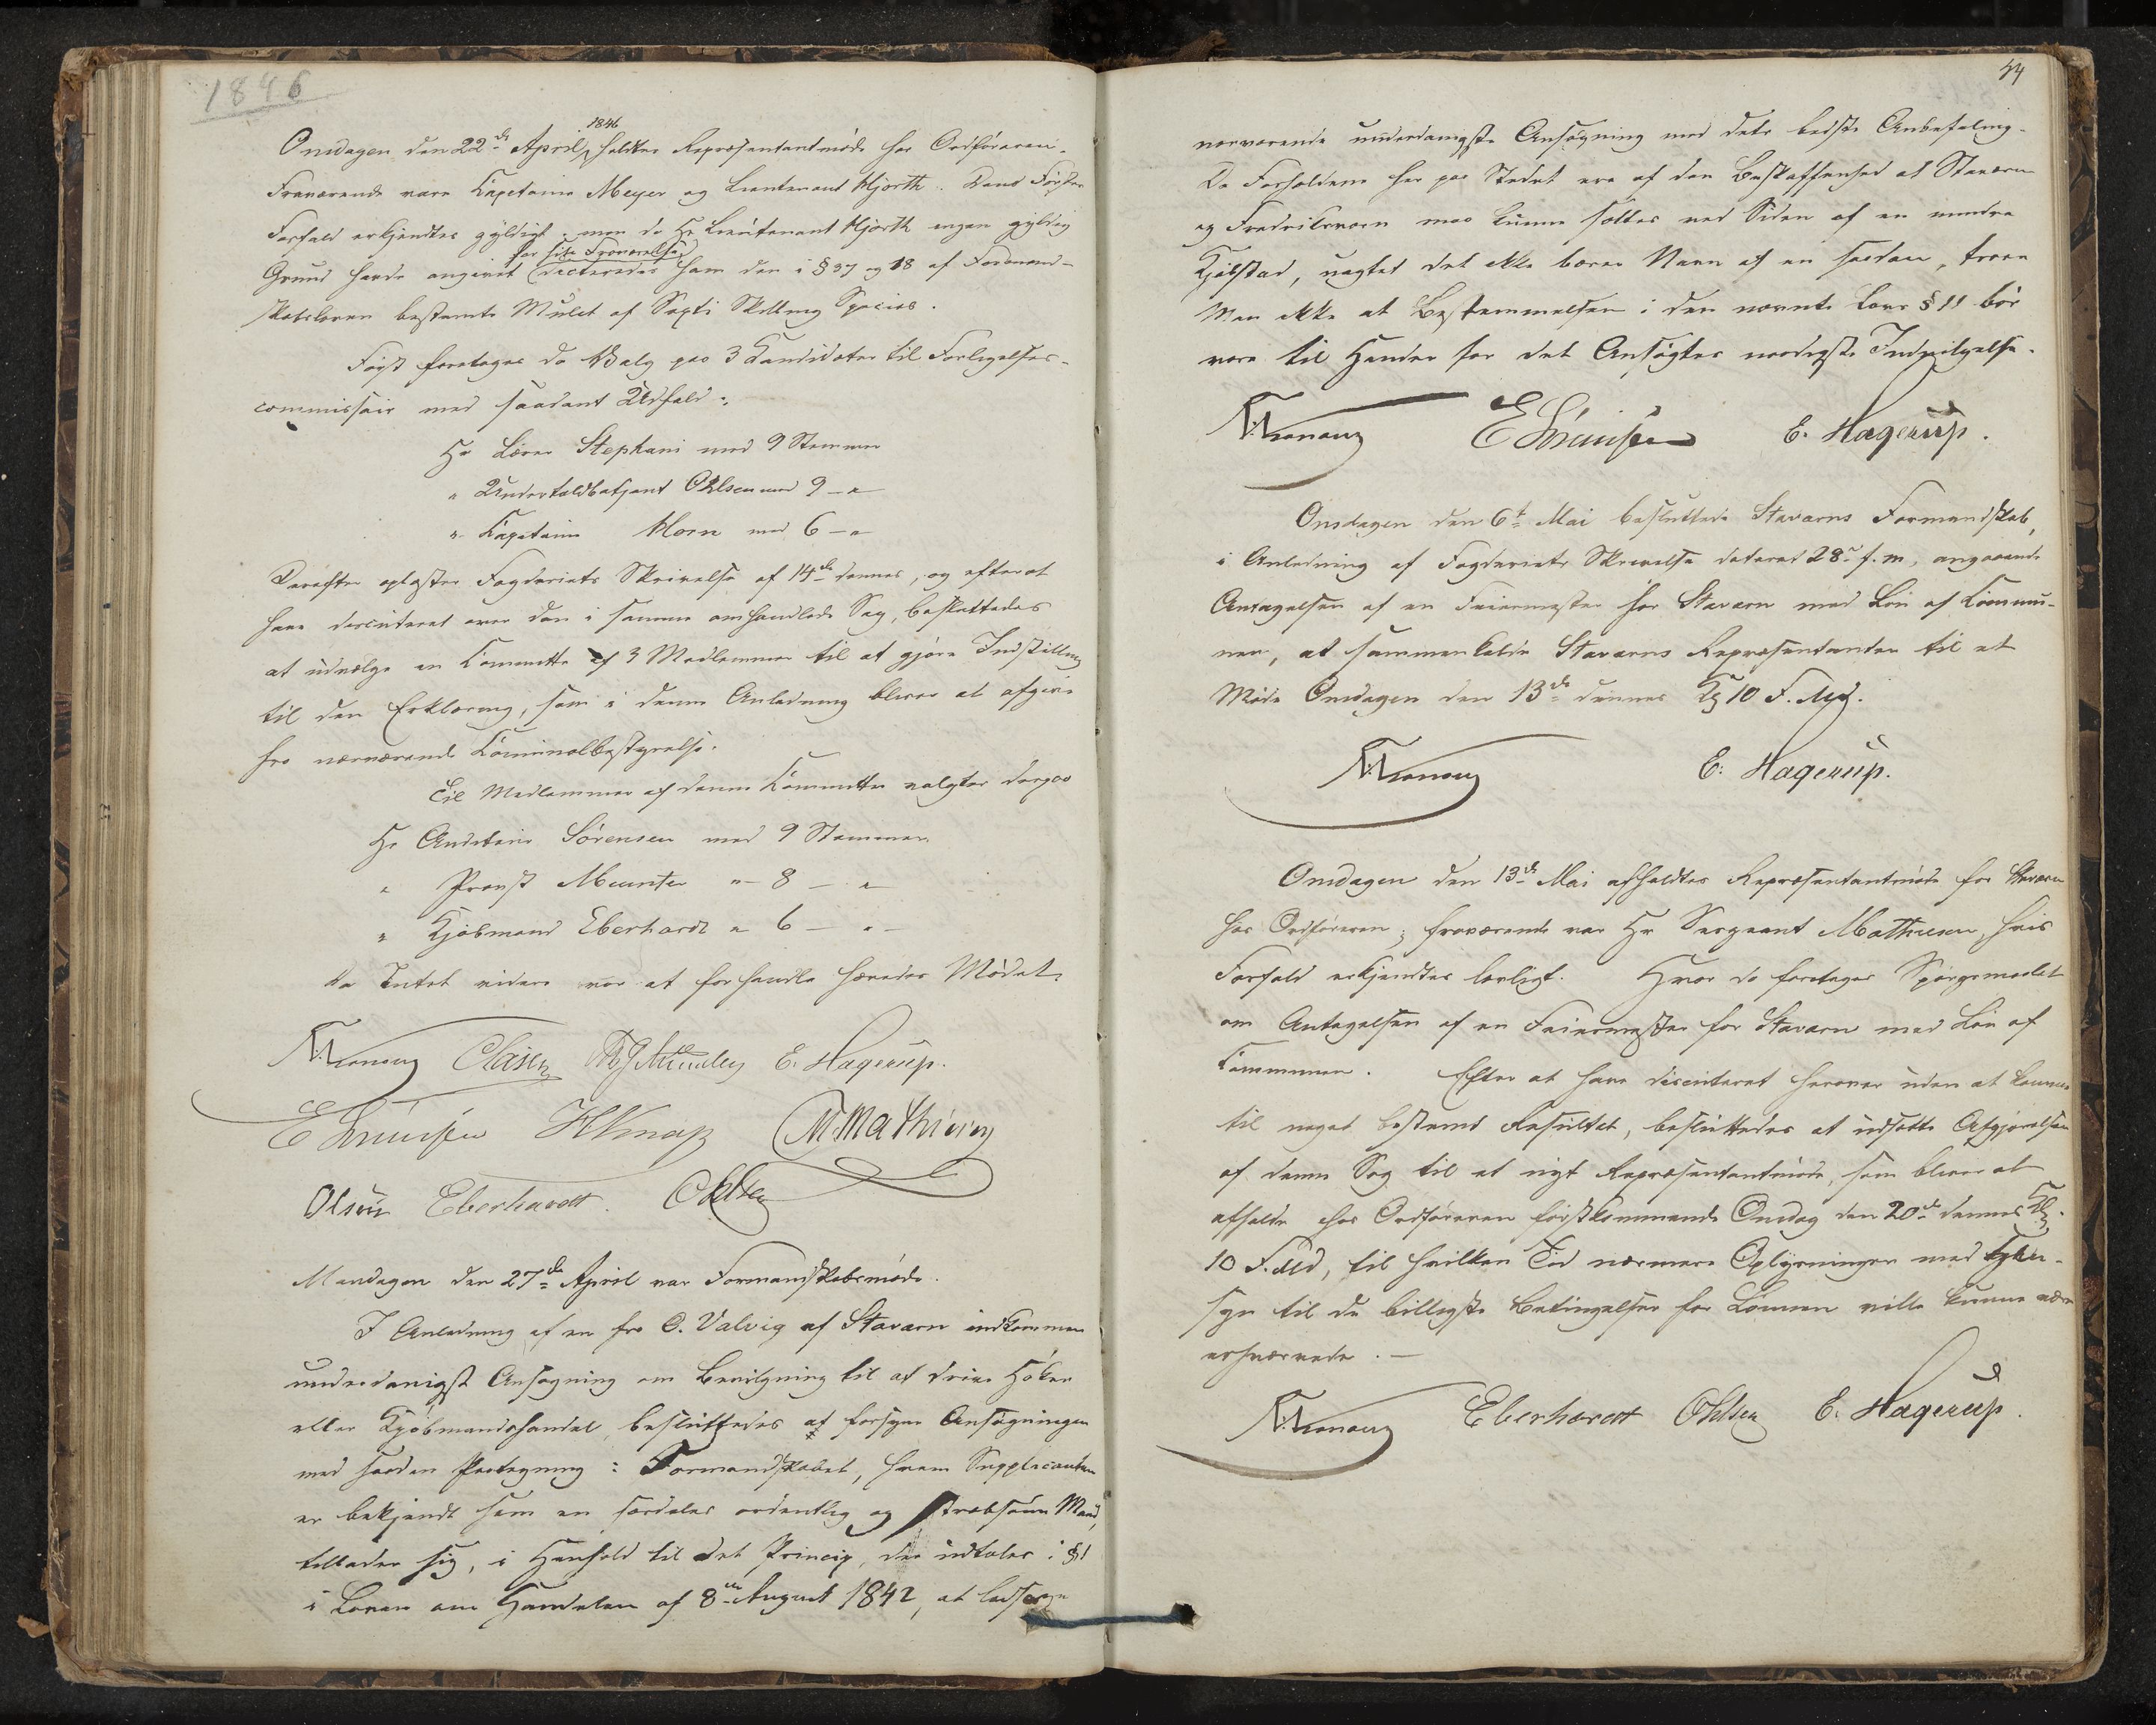 1846
Onsdagen den 22de April 1846 holdtes Repræsentantmøde hos Ordføreren.
Fraværende vare Kapitaine Meyer og Lieutenant Hjorth. Den Førstes
Forfald erkjendtes gyldigt; men da Hr Lieutenant Hjorth ingen gyldig
Grund havde angivet for sin Fraværelse, dicteredes ham den i § 37 og 18 af Formand-
skabsloven bestemte Mulct af Sexti Skilling Species.
Først foretoges da Valg paa 3 Candidater til Forligelses-
commissair med saadant Udfald:
Hr Lærer Stephani med 9 Stemmer
" Undertoldbetjent Ohlsen med 9 - " -
" Kapitaine Horn med 6 - " -
Derefter oplæstes Fogderiets Skrivelse af 14de dennes, og efterat
have discuteret over den i samme omhandlede Sag, besluttedes
at udvælge en Committe af 3 Medlemmer til at gjøre Indstilling
til den Erklæring, som i denne Anledning bliver at afgive
fra nærværende Communalbestyrelse.
Til Medlemmer af denne Committe valgtes derpaa
Hr Auditeur Sørensen med 9 Stemmer.
" Provst Munster " - 8 - " -
" Kjøbmand Eberhardt " 6 - " -
Da Intet videre var at forhandle hævedes Mødet.
Claisen E. Hagerup.
E Sørensen H Knap M. Mathiesen
Olsen Eberhardt. Ohlsen
Mandagen den 27de April var Formandskabsmøde.
I Anledning af en fra O. Valvig af Staværn indkommen
underdanigst Ansøgning om Bevilgning til at drive Høker
eller Kjøbmandshandel, besluttedes at forsyne Ansøgningen
med saadan Paategning: Formandskabet, hvem Supplicanten
er bekjendt som en særdeles ordentlig og stræbsom Mand,
tillader sig, i Henhold til det Princip, der udtales i § 1
i Loven om Handelen af 8de August 1842, at ledsage
44
nærværende underdanigste Ansøgning med dets bedste Anbefaling.
Da Forholdene her paa Stedet ere af den Beskaffenhed at Staværn
og Fredriksværn maa kunne sættes ved Siden af en mindre
Kjøbstad, uagtet det ikke bærer Navn af en saadan, troer
Man ikke at Bestemmelsen i den nævnte Lovs § 11 bør
være til Hinder for det Ansøgtes naadigste Indvilgelse.
E Sørensen E. Hagerup.
Onsdagen den 6te Mai besluttede Staværns Formandskab,
i Anledning af Fogderiets Skrivelse dateret 28de f. M., angaaende
Antagelsen af en Feiermester for Staværn med Løn af Commu-
nen, at sammenkalde Staværns Repræsentanter til et
Møde Onsdagen den 13de dennes Kl 10 F. Md.
E. Hagerup.
Onsdagen den 13de Mai afholdtes Repræsentantmøde for Staværn
hos Ordføreren; fraværende var Hr Sergeant Mathiesen, hvis
Forfald erkjendtes lovligt. Hvor da foretoges Spørgsmaalet
om Antagelsen af en Feiermester for Staværn med Løn af
Communen. Efter at have discuteret herover uden at komme
til noget bestemt Resultat, besluttedes at udsætte Afgjørelsen
af denne Sag til et nyt Repræsentantmøde, som bliver at
afholde hos Ordføreren førstkommende Onsdag den 20de dennes Kl.
10 F. Md, til hvilken Tid nærmere Oplysninger med Hen-
syn til de billigste Betingelser for Lønnen ville kunne være
erhvervede. —
Eberhardt Ohlsen E. Hagerup.